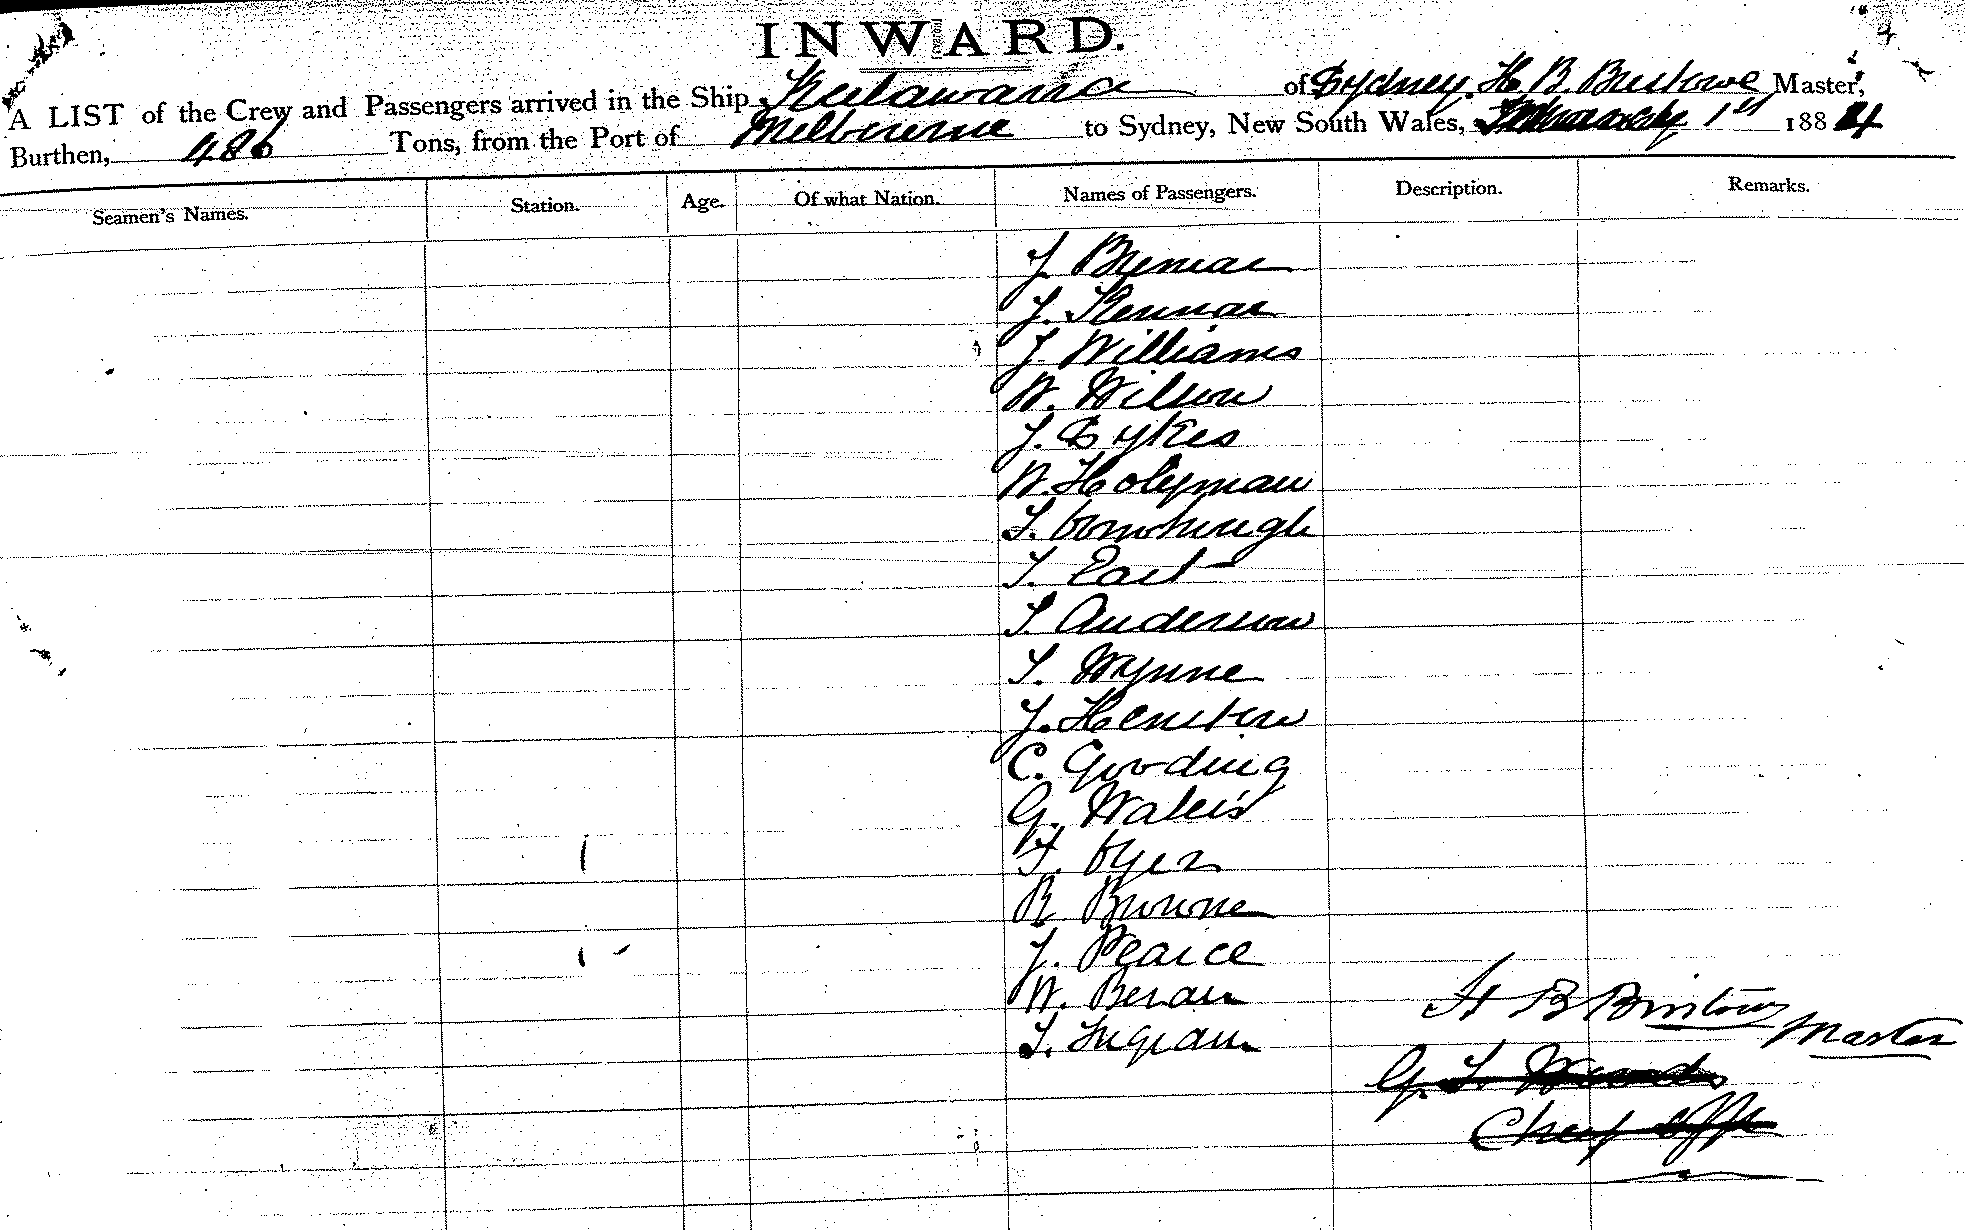 INWARD.
A LIST of the Crew and Passengers arrived in the Ship Keilawarra of Sydney, H. B. Bristowe Master,
Burthen, 486 Tons, from the Port of Melbourne to Sydney, New South Wales, 1st 1884
Seamen's Names. Station. Age. Of what Nation. Names of Passengers. Description. Remarks.
J.
J. Kennar
J. Williams
W. Wilson
J. Sykes
W. Holyman
T.
T. East
T. Anderson
T. Wynne
J.
C. Gooding
G.
F.
R Browne
J. Pearce
W.
H B Bristow
T. Ingram
Master
G. T. Woods
Chief Offr